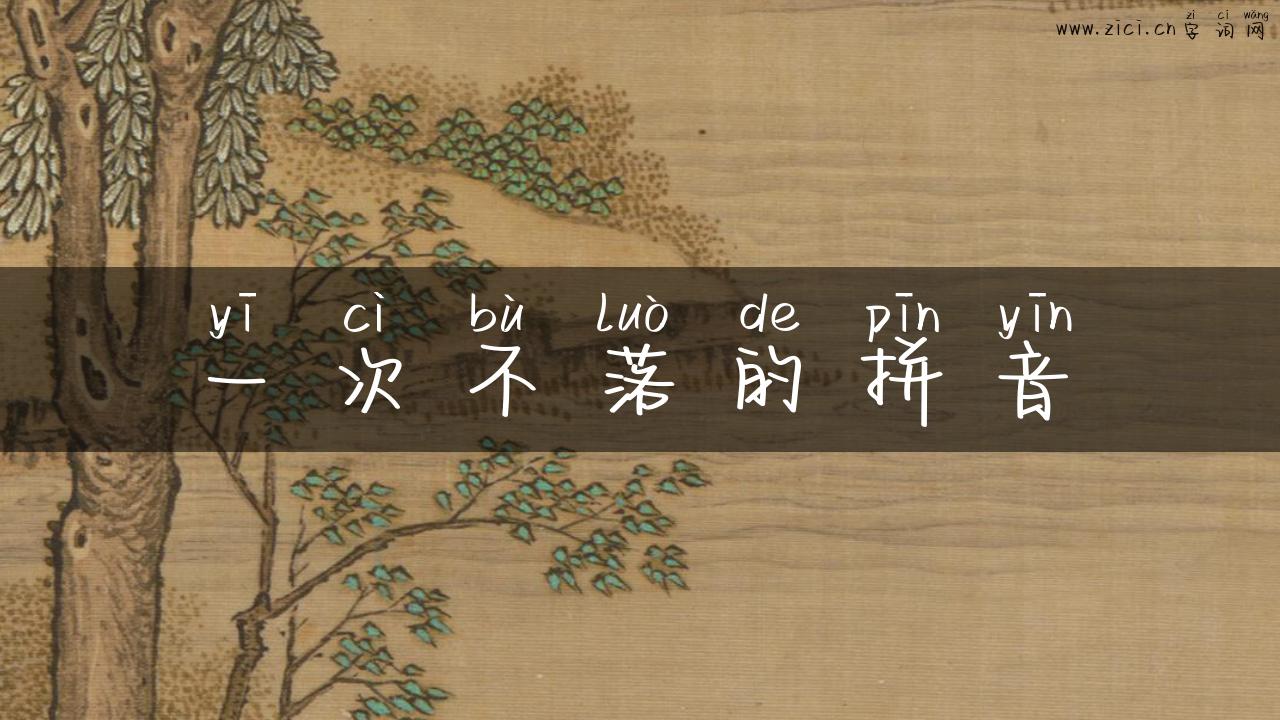 zì cí wǎng
www.zici.cn 字词网
yī cì bù luò de pīn yīn
一次不落的拼音